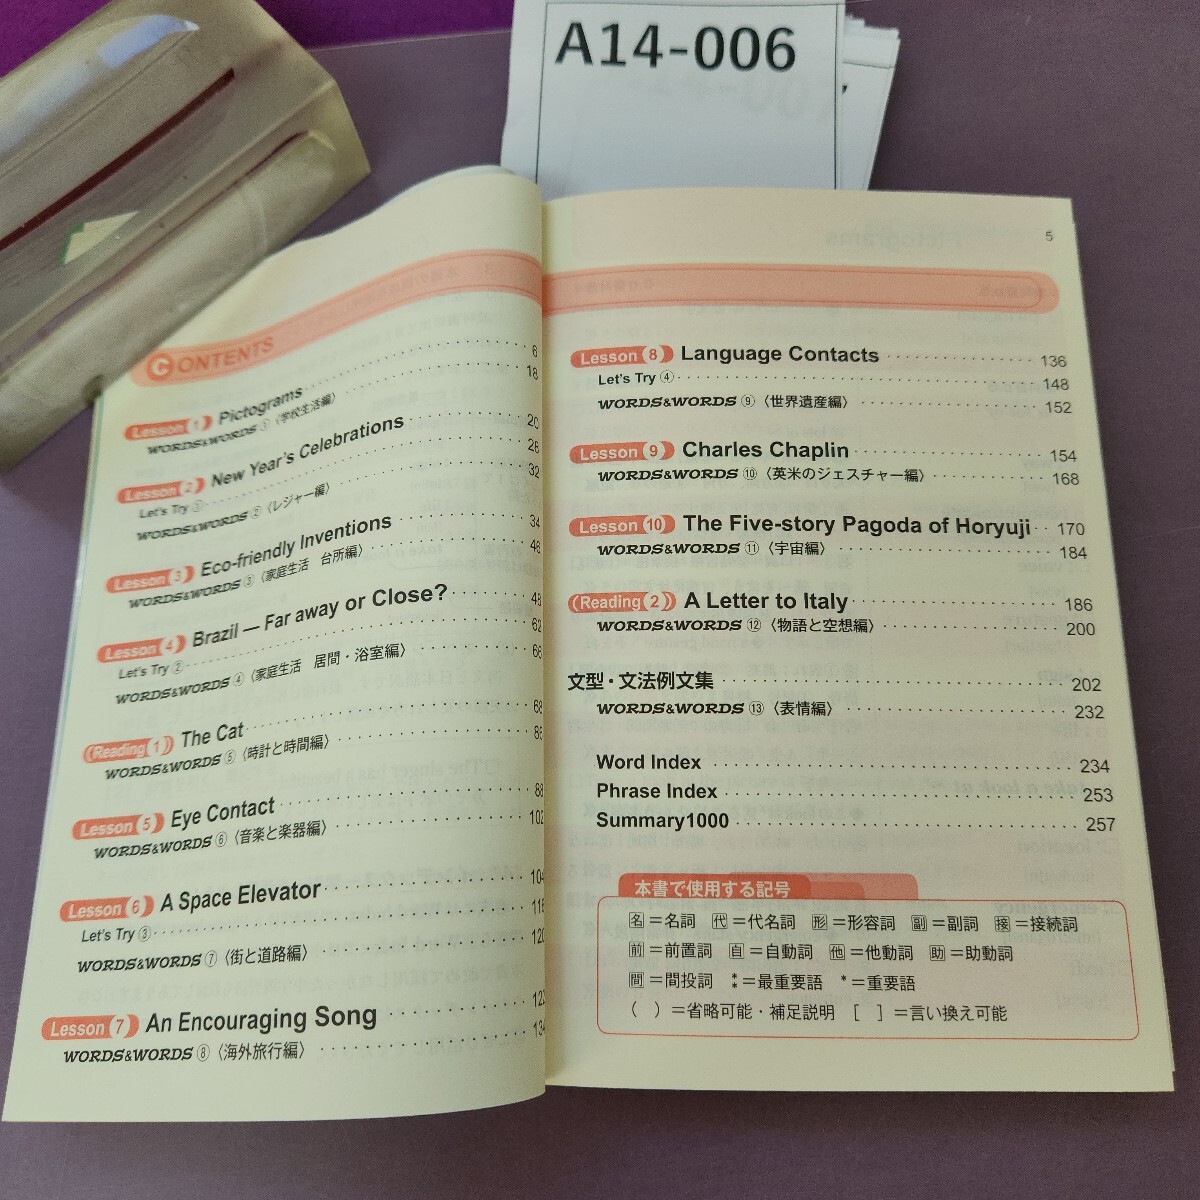 A14-006
CONTENTS
Lesson 1 Pictograms 6
WORDS&WORDS ①〈学校生活編〉 18
Lesson 2 New Year's Celebrations 20
Let's Try ① 26
WORDS&WORDS ②〈レジャー編〉 32
Lesson 3 Eco-friendly Inventions 34
WORDS&WORDS ③〈家庭生活 台所編〉 46
Lesson 4 Brazil — Far away or Close? 48
Let's Try ② 62
WORDS&WORDS ④〈家庭生活 居間・浴室編〉 66
Reading 1 The Cat 68
WORDS&WORDS ⑤〈時計と時間編〉 86
Lesson 5 Eye Contact 88
WORDS&WORDS ⑥〈音楽と楽器編〉 102
Lesson 6 A Space Elevator 104
Let's Try ③ 116
WORDS&WORDS ⑦〈街と道路編〉 120
Lesson 7 An Encouraging Song 122
WORDS&WORDS ⑧〈海外旅行編〉 134
5
Lesson 8 Language Contacts 136
Let's Try ④ 148
WORDS&WORDS ⑨〈世界遺産編〉 152
Lesson 9 Charles Chaplin 154
WORDS&WORDS ⑩〈英米のジェスチャー編〉 168
Lesson 10 The Five-story Pagoda of Horyuji 170
WORDS&WORDS ⑪〈宇宙編〉 184
Reading 2 A Letter to Italy 186
WORDS&WORDS ⑫〈物語と空想編〉 200
文型・文法例文集 202
WORDS&WORDS ⑬〈表情編〉 232
Word Index 234
Phrase Index 253
Summary1000 257
本書で使用する記号
名＝名詞 代＝代名詞 形＝形容詞 副＝副詞 接＝接続詞
前＝前置詞 自＝自動詞 他＝他動詞 助＝助動詞
間＝間投詞 ⁑＝最重要語 *＝重要語
( )＝省略可能・補足説明 [ ]＝言い換え可能